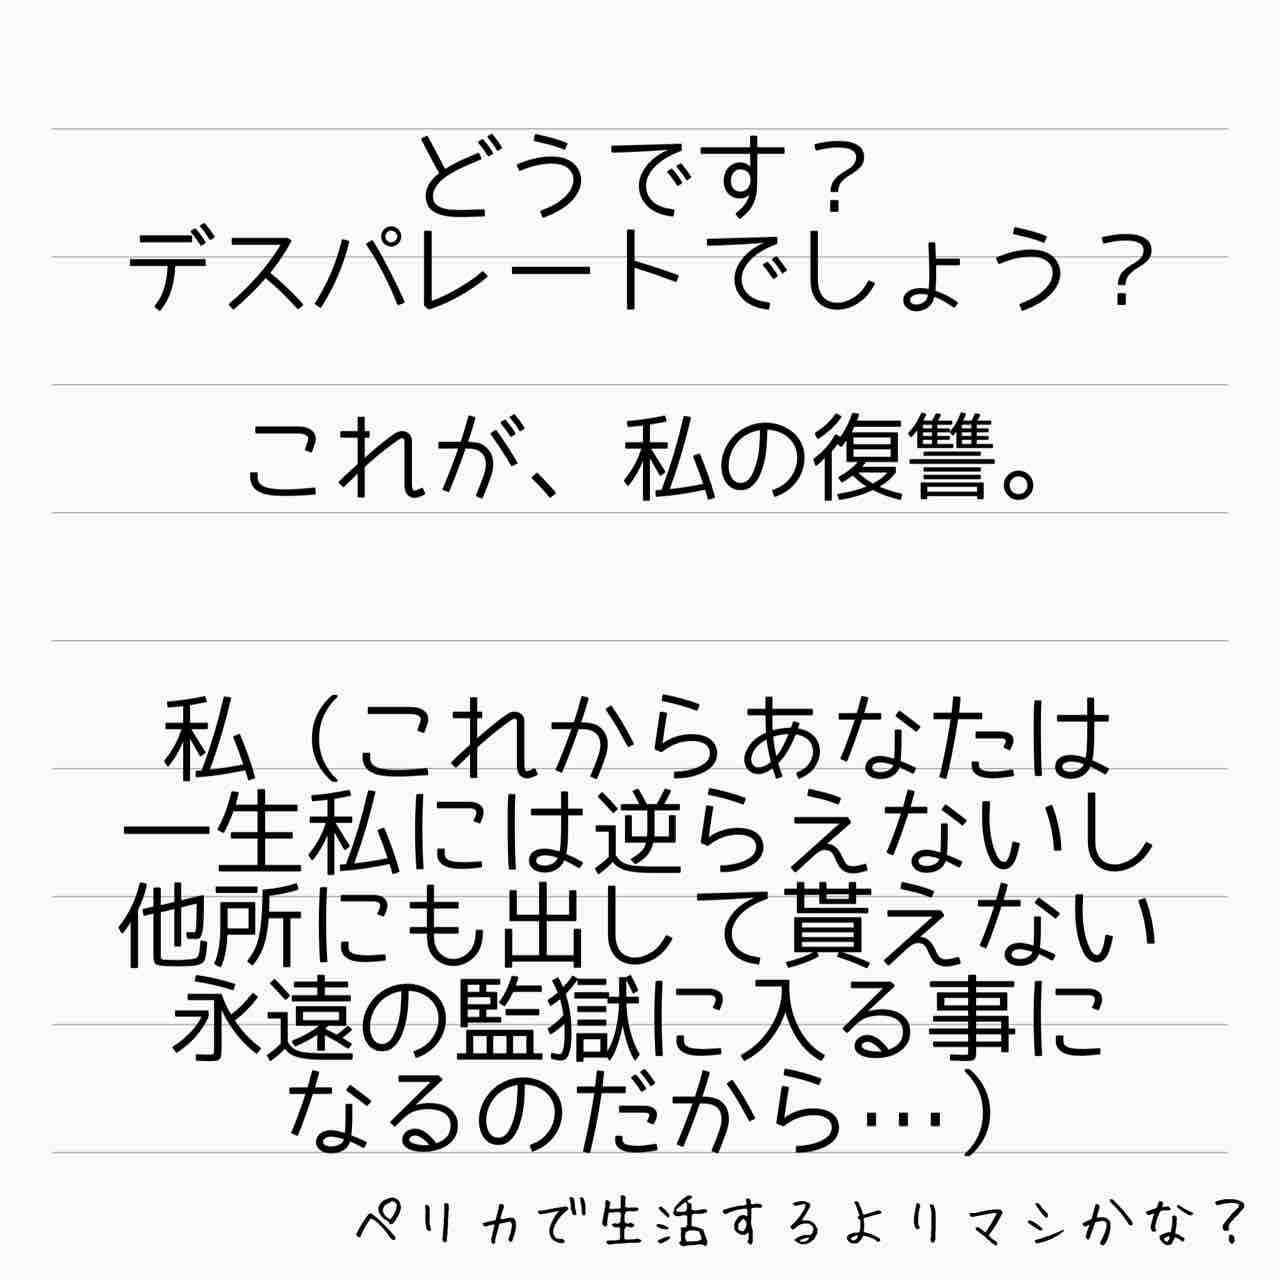 どうです？
デスパレートでしょう？
これが、私の復讐。
私（これからあなたは
一生私には逆らえないし
他所にも出して貰えない
永遠の監獄に入る事に
なるのだから…）
ペリカで生活するよりマシかな？